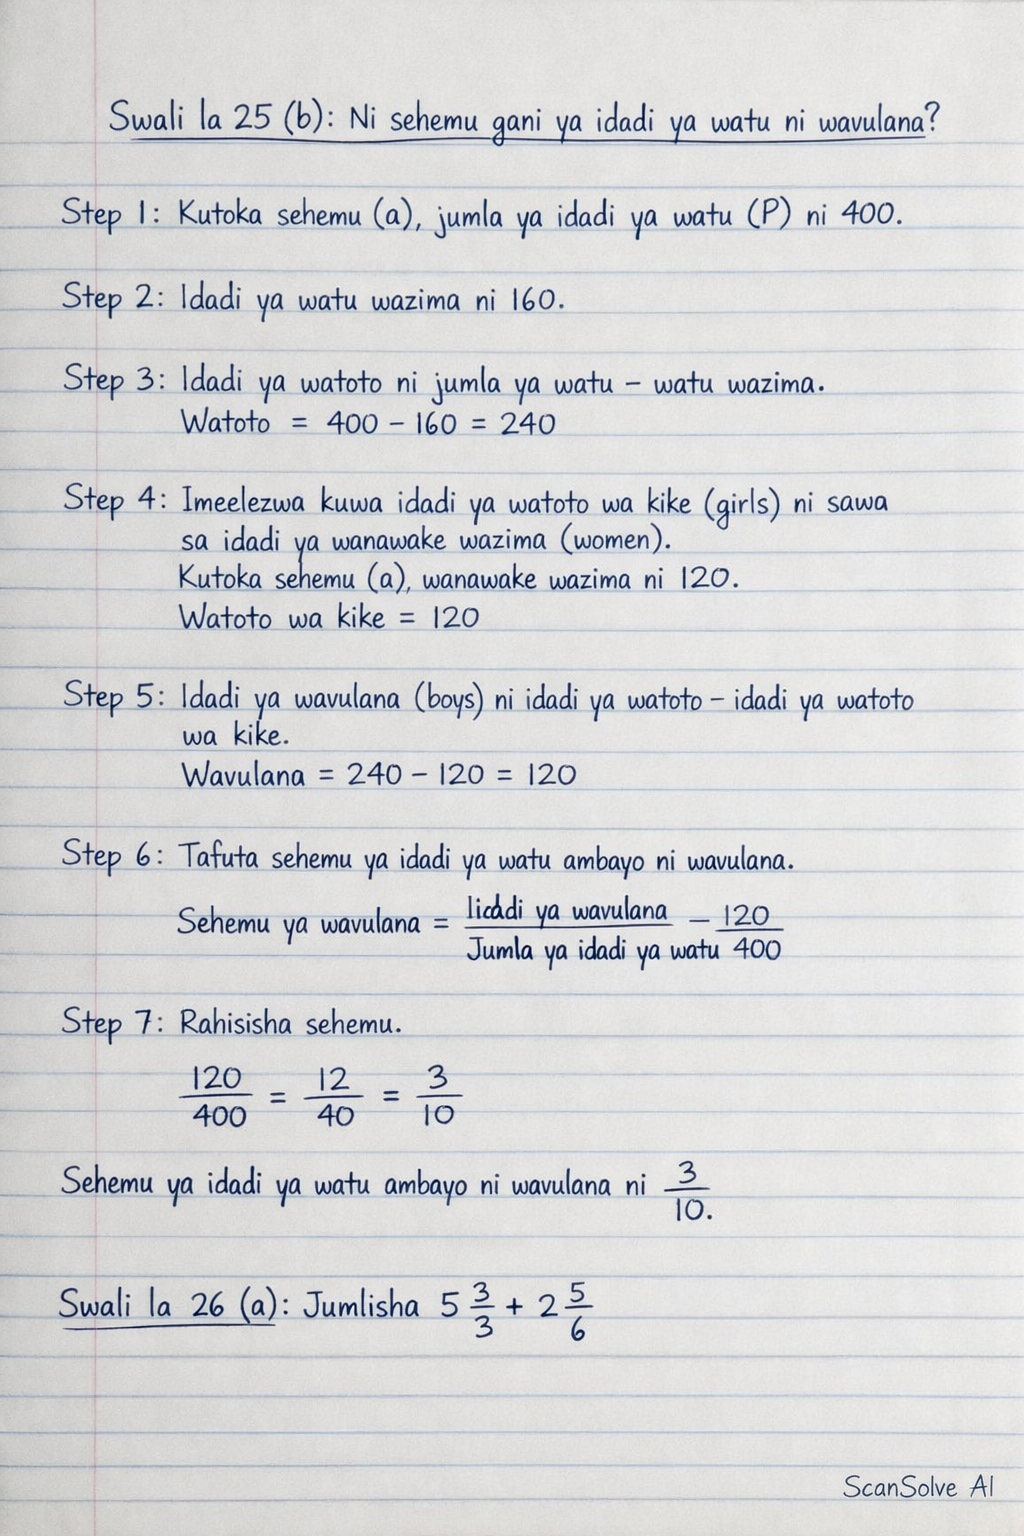 Swali la 25 (b): Ni sehemu gani ya idadi ya watu ni wavulana?
Step 1: Kutoka sehemu (a), jumla ya idadi ya watu (P) ni 400.
Step 2: Idadi ya watu wazima ni 160.
Step 3: Idadi ya watoto ni jumla ya watu – watu wazima.
Watoto = 400 – 160 = 240
Step 4: Imeelezwa kuwa idadi ya watoto wa kike (girls) ni sawa
sa idadi ya wanawake wazima (women).
Kutoka sehemu (a), wanawake wazima ni 120.
Watoto wa kike = 120
Step 5: Idadi ya wavulana (boys) ni idadi ya watoto – idadi ya watoto
wa kike.
Wavulana = 240 – 120 = 120
Step 6: Tafuta sehemu ya idadi ya watu ambayo ni wavulana.
Sehemu ya wavulana = ya wavulana / Jumla ya idadi ya watu – 120/400
Step 7: Rahisisha sehemu.
120/400 = 12/40 = 3/10
Sehemu ya idadi ya watu ambayo ni wavulana ni 3/10.
Swali la 26 (a): Jumlisha 5 3/3 + 2 5/6
ScanSolve AI